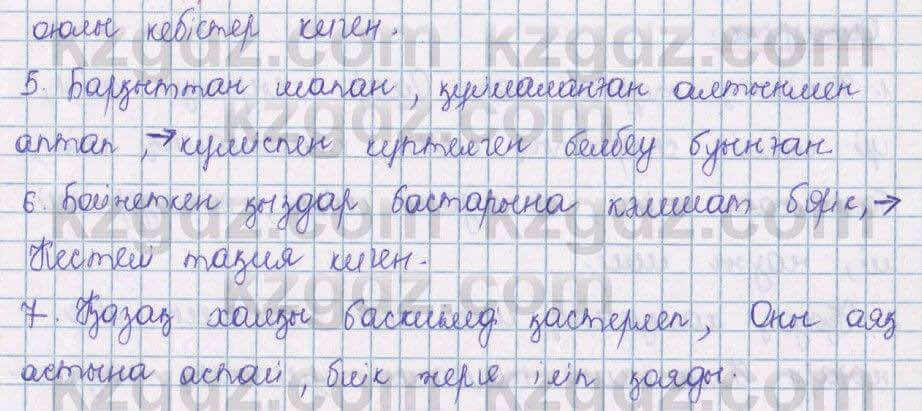 оюлы кебістер киген.
5. Барқыттан шапан, құрмаманған алтынмен
аптап, → күміспен күптелген белбеу буынған
6. Бойжеткен қыздар бастарына кәмшат бөрік, →
Кестелі тақия киген.
7. Қазақ халқы баскиімді қастерлеп, Оны аяқ
астына аспай, биік жерге іліп қояды.